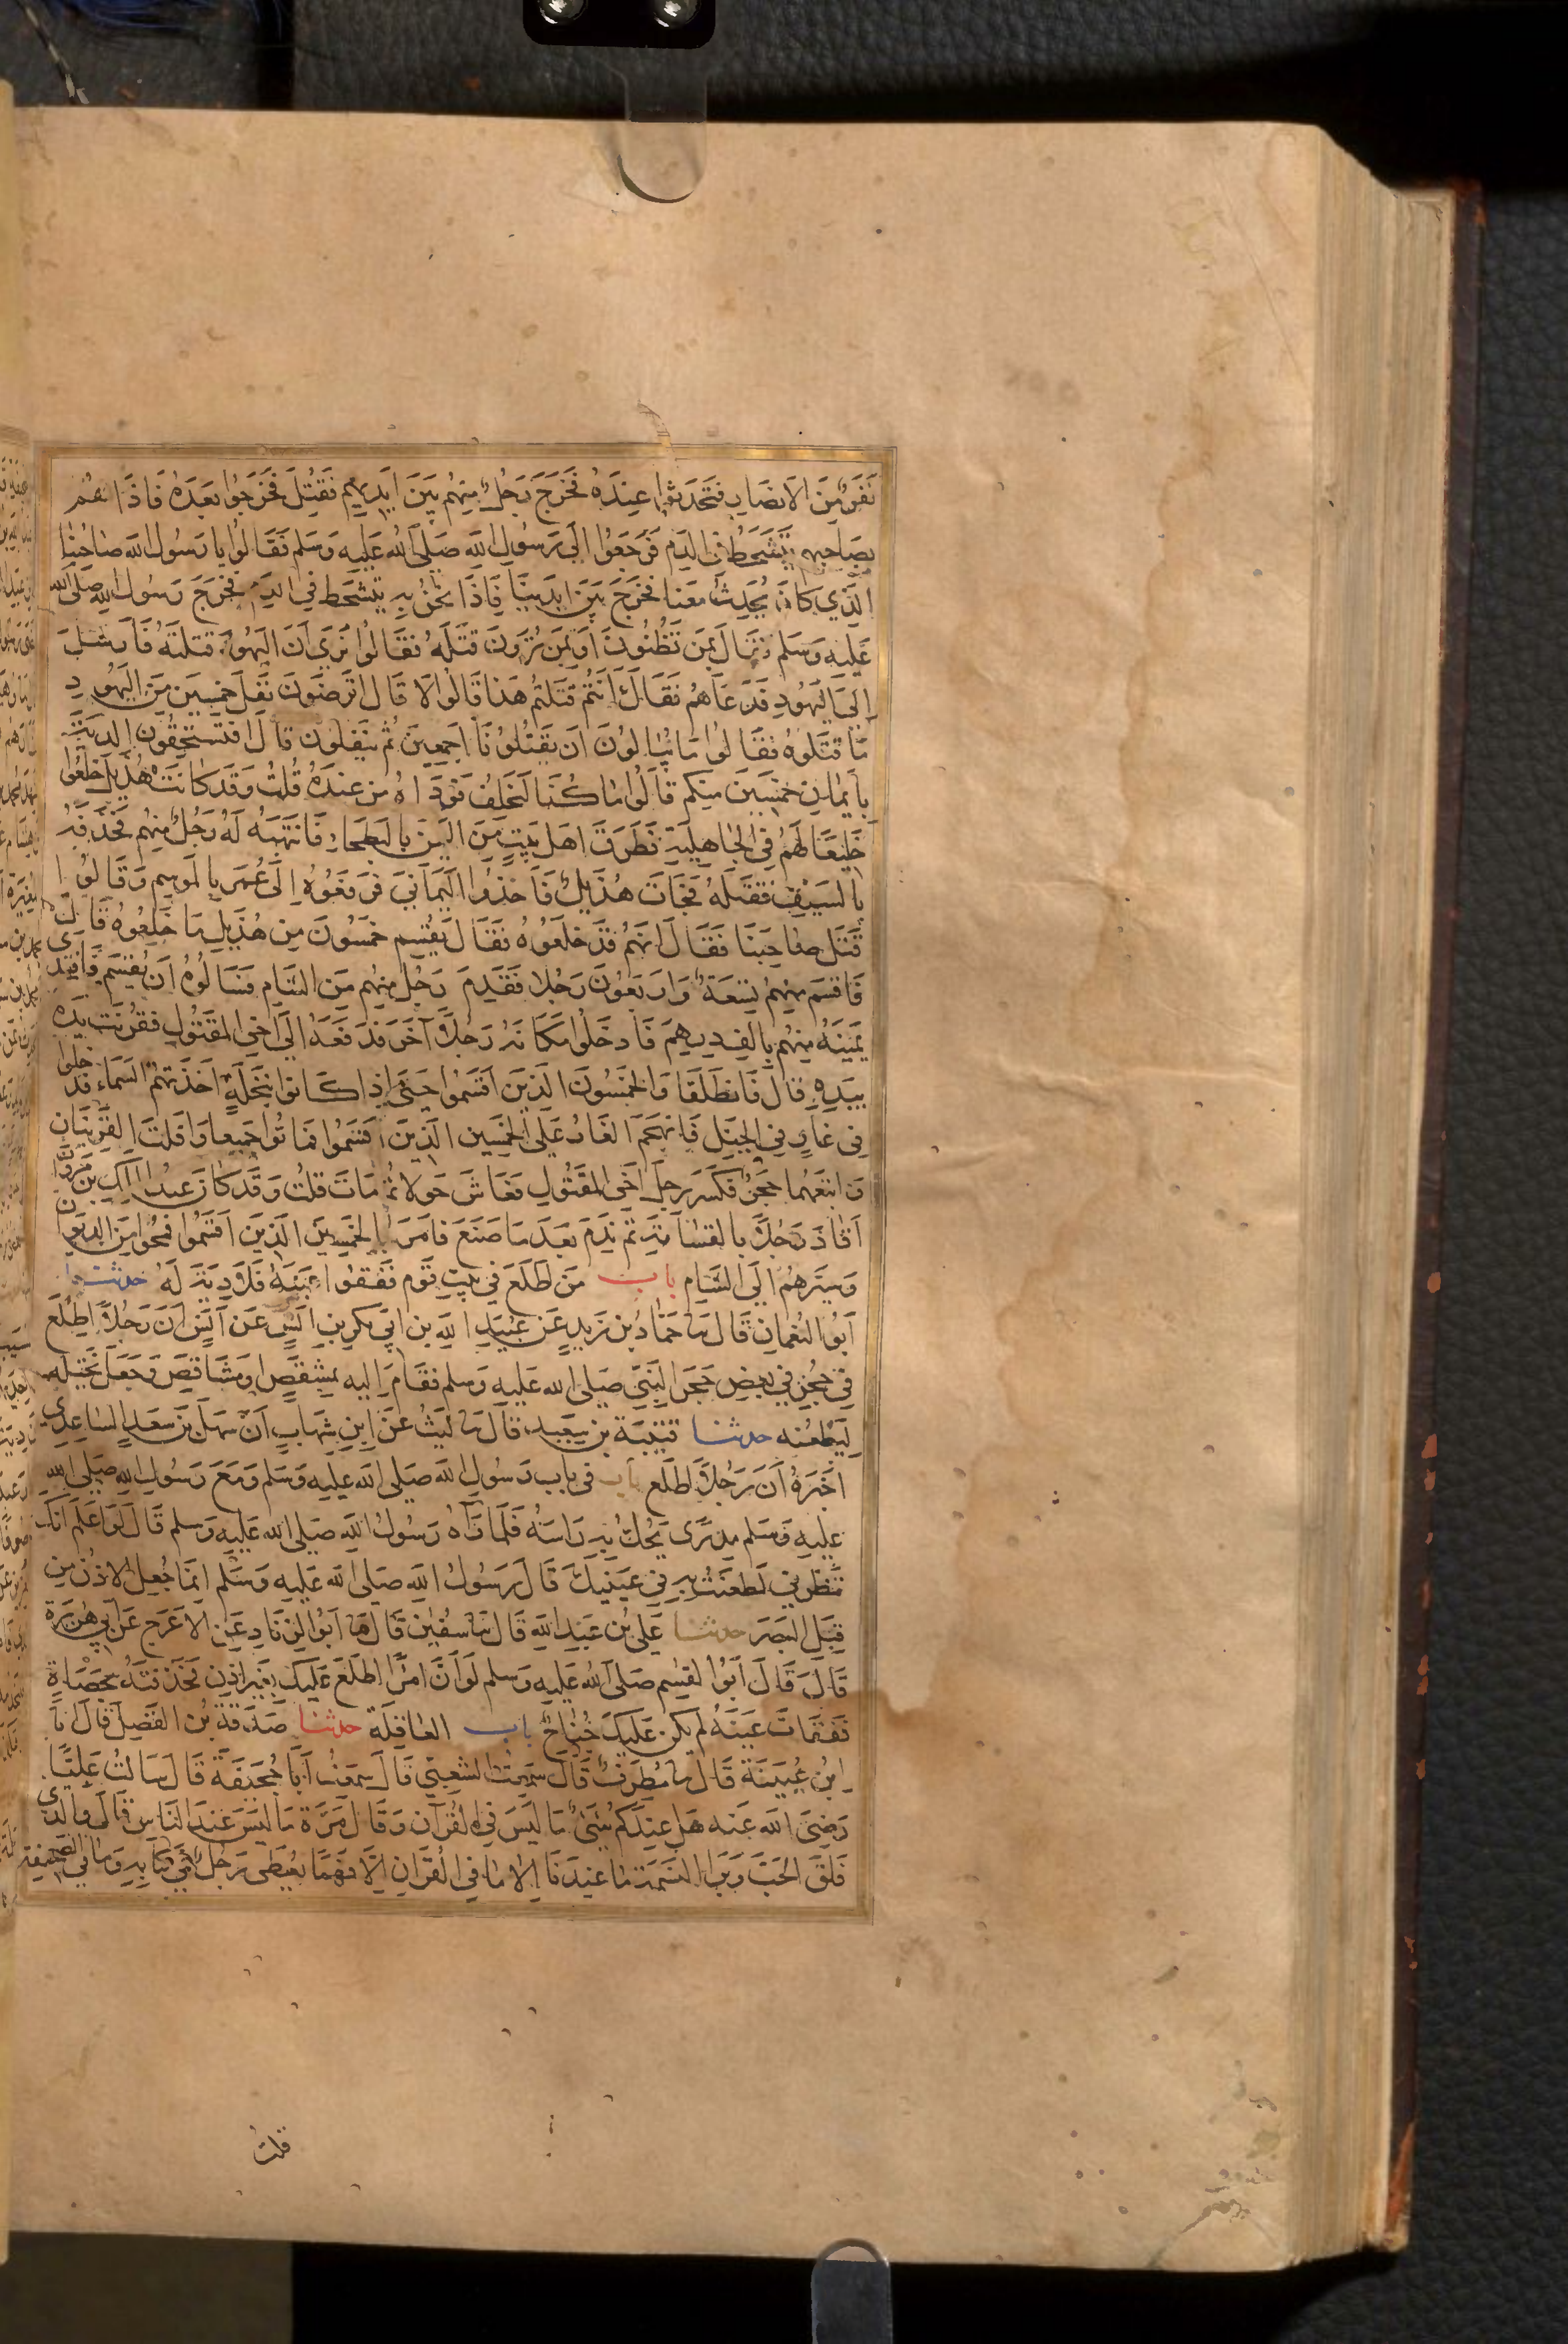 نَفَرٌ مِنَ الاَنصَارِ فَتَحَدَّثُوا عِندَهُ فَخَرَجَ رَجُلٌ مِنهُم بَينَ اَيدِيهِم فَقُتِلَ فَخَرَجُوا بَعدَهُ فَاِذَا هُم
بِصَاحِبِهِم يَتَشَحَّطُ فِي الدَّمِ فَرَجَعُوا اِلَى رَسُولِ اللهِ صَلَّى اللهُ عَلَيهِ وَسَلَم فَقَالُوا يَا رَسُولَ اللهِ صَاحِبُنَا
الَّذِي كَانَ يُحَدِّثُ مَعَنَا فَخَرَجَ بَينَ اَيدِينَا فَاِذَا نَحنُ بِهِ يَتَشَحَّطُ فِي الدَّمِ فَخَرَجَ رَسُولُ اللهِ صَلَّى الله
عَلَيهِ وَسَلَم فَقَالَ بِمَن تَظُنُّونَ اَو بِمَن تُرَونَ قَتَلَهُ فَقَالُوا نُرَى اَنَّ اليَهُودَ قتَلَتهُ فَاَرسَلَ
اِلَى اليَهُودِ فَدَعَاهُم فَقَالَ اَنتُم قَتَلتُم هَذَا قَالُوا لَا قَالَ اَتَرضَونَ نَفَلَ خَمسِينَ مِنَ اليَهُودِ
مَا قَتَلُوهُ فَقَالُوا مَا يُبَالُونَ اَن يَقتُلُونَا اَجمَعِينَ ثُم يَنفِلُونَ قَالَ اَفَتَستَحِقُّونَ الدِّيَةَ
بِاَيمَانِ خَمسِينَ مِنكُم قَالُوا مَا كُنَّا لِنَحلِفَ فَوَدَاهُ مِن عِندِهُ قُلتُ وَقَد كَانَت هُذَيلٌ خَلَعُوا
خَلِيعًا لَهُم فِي الجَاهِلِيَّةِ فَطَرَقَ اَهلَ بَيتٍ مِنَ اليَمَن بِالبَطحَاءِ فَانتَبَهَ لَهُ رَجُلٌ مِنهُم فَحَذَفَهُ
بِالسَّيفِ فَقَتَلَهُ فَجَاءَت هُذَيلٌ فَاَخَذُوا اليَمَانِيَ فَرَفَعُوهُ اِلَى عُمَرَ بِالمَوسِمِ وَقَالُوا
قَتَلَ صَاحِبَنَا فَقَالَ اِنَّهُم قَد خَلَعُوهُ فَقَالَ يُقسِمُ خَمسُونَ مِن هُذَيلٍ مَا خَلَعُوهُ قَالَ
فَاَقسَمَ مِنهُم تِسعَةٌ وَاَربَعُونَ رَجُلًا فَقَدِمَ رَجُلٌ مِنهُم مِنَ الشَّامِ فَسَاَلُوهُ اَن يُقسِمَ فَافتَدَى
يَمِينَهُ مِنهُم بِاَلفِ دِرهَمٍ فَاَدخَلُوا مَكَانَهُ رَجُلًا آخَرَ فَدَفَعَهُ اِلَى اَخِي المَقتُولِ فَقُرِنَت يَدُهُ
بِيَدِهِ قَالَ فَانطَلَقَا وَالخَمسُونَ الَّذِينَ اَقسَمُوا حَتَّى اِذَا كَانُوا بِنَخلَةٍ اَخَذَتهُم السَّمَاءُ فَدَخَلُوا
فِي غَارٍ فِي الجَبَلِ فَانهَجَمَ الغَارُ عَلَى الخَمسِين الَّذِينَ اَقسَمُوا فَمَاتُوا جَمِيعًا وَاَفلَتَ القَرِينَانِ
وَاتبَعَهُمَا حَجَرٌ فَكَسَرَ رِجلَ اَخِي المَقتُولِ فَعَاشَ حَولًا ثُم مَاتَ قُلتُ وَقَد كَانَ عَبدُ المَلِكِ بنُ مَروَانَ
اَقَادَ رَجُلًا بِالقَسَامَةِ ثُم نَدِمَ بَعدَ مَا صَنَعَ فَاَمَرَ بِالخَمسِينَ الَّذِينَ اَقسَمُوا فَمُحُوا مِنَ الدِّيوَان
وَسَيَّرَهُم اِلَى الشَّامِ باب مَن اطَّلَعَ فِي بَيتِ قَومٍ فَفَقَئُوا عَينَهُ فَلَا دِيَةَ لَهُ حدثنا
اَبُو النُّعمَانِ قَالَ نا حَمَّادُ بن زَيدٍ عَن عُبَيدِ اللهِ بنِ اَبِي بَكرِ بنِ اَنَسٍ عَن اَنَسٍ اَنَّ رَجُلًا اِطَّلَعَ
فِي جُحرٍ فِي بَعضِ حُجَرِ النَّبِيِّ صَلَّى اللهُ عَلَيهِ وَسَلم فَقَامَ اِلَيهِ بِمِشقَصٍ اَو مَشَاقِصَ وَجَعَلَ يَختِلُه
لِيَطعُنَه حدثنا قُتَيبَةُ بن سَعِيدٍ قَالَ نا لَيثٌ عَن اِبنِ شِهَابٍ اَنَّ سَهلَ بنَ سَعدٍ السَّاعِدِي
اَخبَرَهُ اَنَّ رَجُلًا اطَّلَعَ باب فِي باب رَسُولِ اللهِ صَلَّى اللهُ عَلَيهِ وَسَلم وَمَعَ رَسُولِ اللهِ صَلَّى اللهُ
عَلَيهِ وَسَلم مِدرًى يَحُكُّ بِهِ رَاسَهُ فَلَمَّا رَآهُ رَسُولُ اللهِ صَلَّى اللهُ عَلَيهِ وَسلم قَالَ لَو اَعلَمُ اَنَّكَ
تَنظُرُنِي لَطَعَنتُ بِهِ فِي عَينَيكَ قَالَ رَسُولُ اللهِ صَلَّى اللهُ عَلَيهِ وَسَلم اِنَّمَا جُعِلَ الاِذنُ مِن
قِبَلِ البَصَرِ حدثنا عَلِيُّ بن عَبدِ اللهِ قَالَ نا سُفيَانُ قَالَ نا اَبُو الزِّنَادِ عَنِ الاَعرَجِ عَن اَبِي هُرَيرَةَ
قَالَ قَالَ اَبُو القَاسِم صَلَّى اللهُ عَلَيهِ وَسلم لَو اَنَّ امرَءًا اطَّلَعَ عَلَيكَ بِغَيرِ اِذنٍ فَخَذَفتَهُ بِحَصَاةٍ
فَفَقَاتَ عَينَهُ لَم يَكُن عَلَيكَ جُنَاحٌ باب العَاقِلَة حدثنا صَدَقَةُ بنُ الفَضلِ قَالَ انا
ابنُ عُيَينَةَ قَالَ نا مُطَرِّفٌ قَالَ سَمِعتُ الشَّعبِيَّ قَالَ سَمِعتُ اَبَا جُحَيفَةَ قَالَ سَاَلتُ عَلِيًّا
رَضِيَ اللهُ عَنه هَل عِندَكُم شَيءٌ مَا لَيسَ فِي القُرآنِ وَقَالَ مَرَّةً مَا لَيسَ عِندَ النَّاسِ قَالَ وَالَّذِي
فَلَقَ الحَبَّ وَبَرَاَ النَّسَمَةَ مَا عِندَنَا اِلَّا مَا فِي القُرآنِ اِلَّا فَهمًا يُعطَى رَجُلٌ فِي كِتَابِهِ وَمَا فِي الصَّحِيفَةِ
قلت